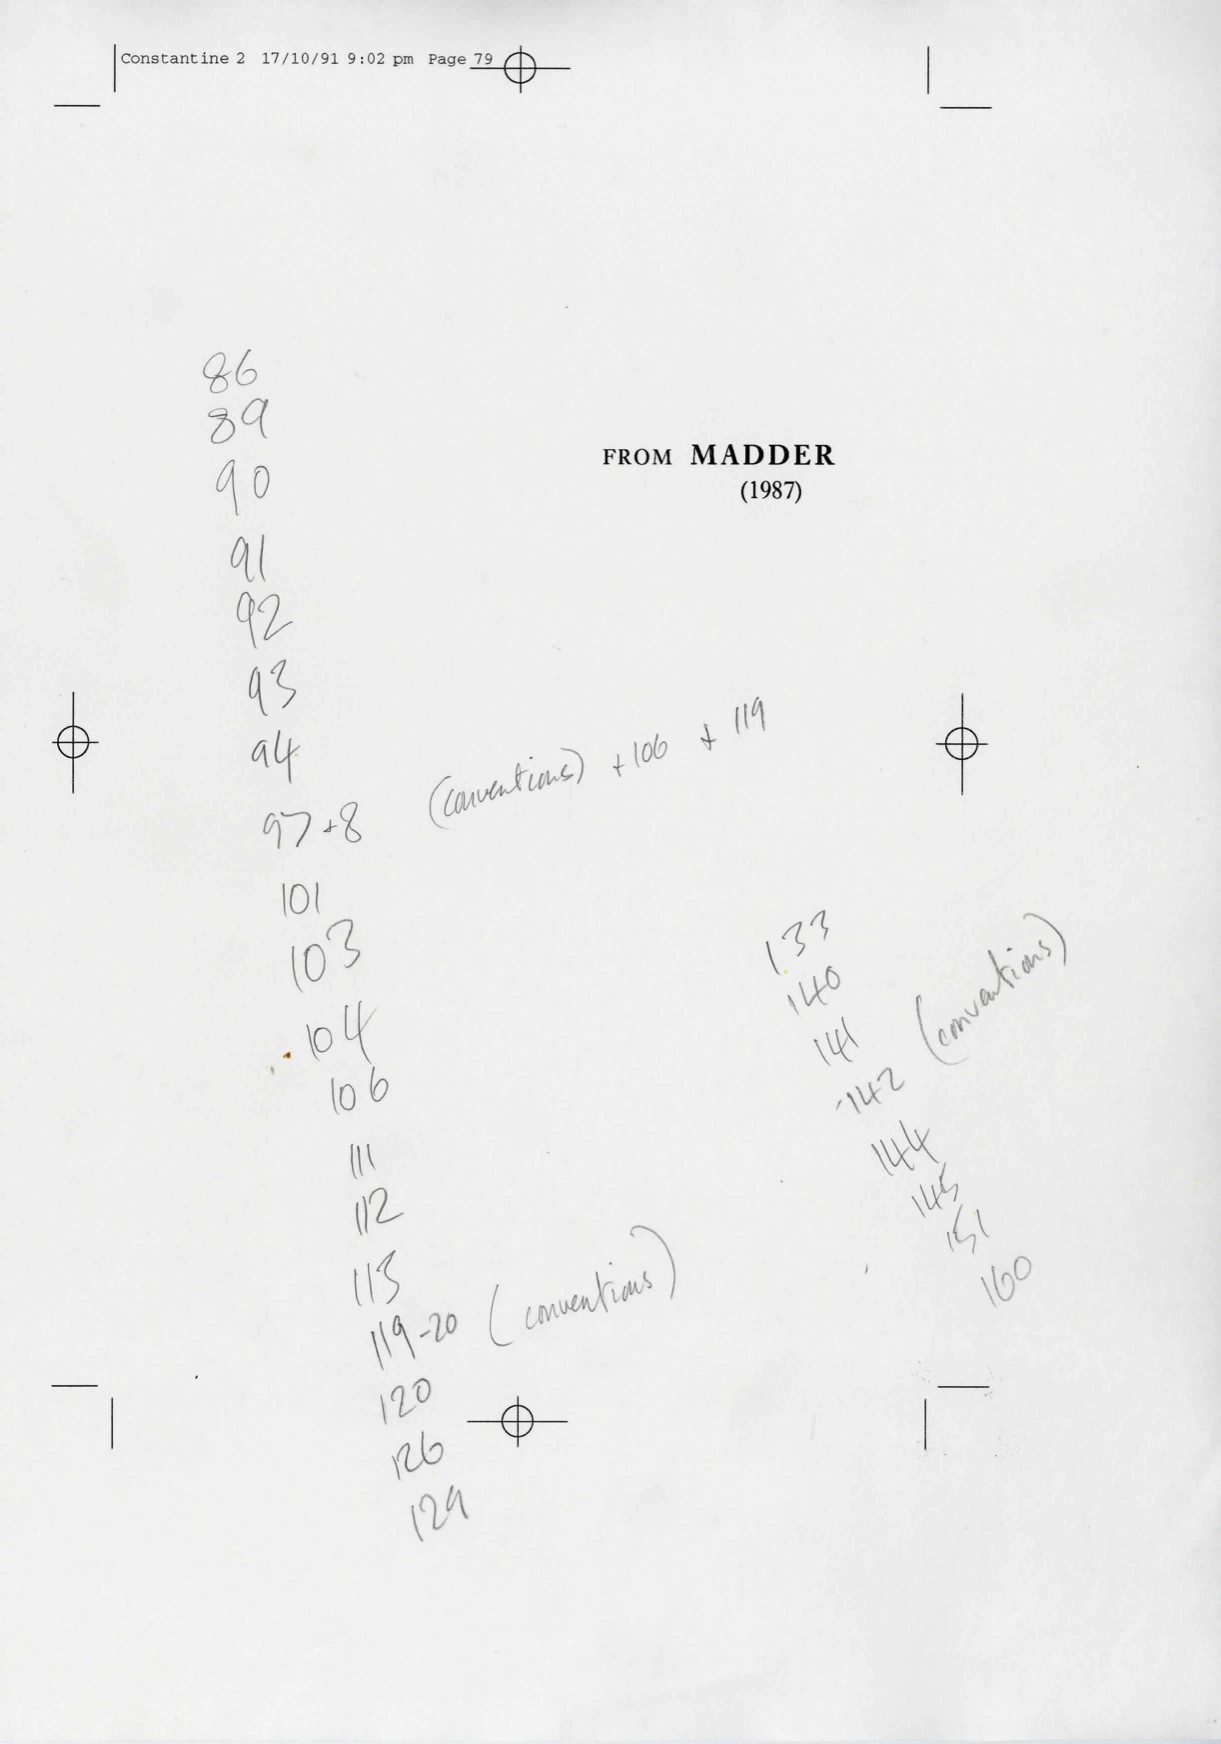 Constantine 2 17/10/91 9:02 pm Page 79
FROM MADDER
(1987)
86
89
90
91
92
93
94
97+8 (conventions) +106 + 119
101
103
104
106
111
112
113
119-20 (conventions)
120
126
129
133
140
141
142 (conventions)
144
145
151
160